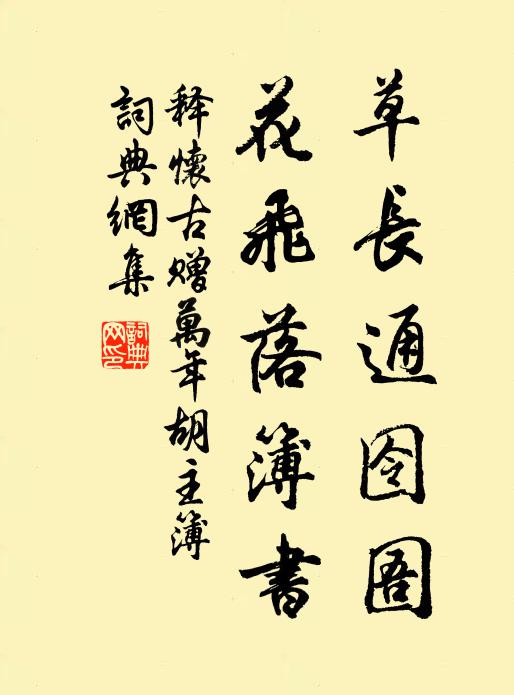 草長通囹圄
花飛落簿書
释懷古贈萬年胡主簿
詞典網集
詞典網印